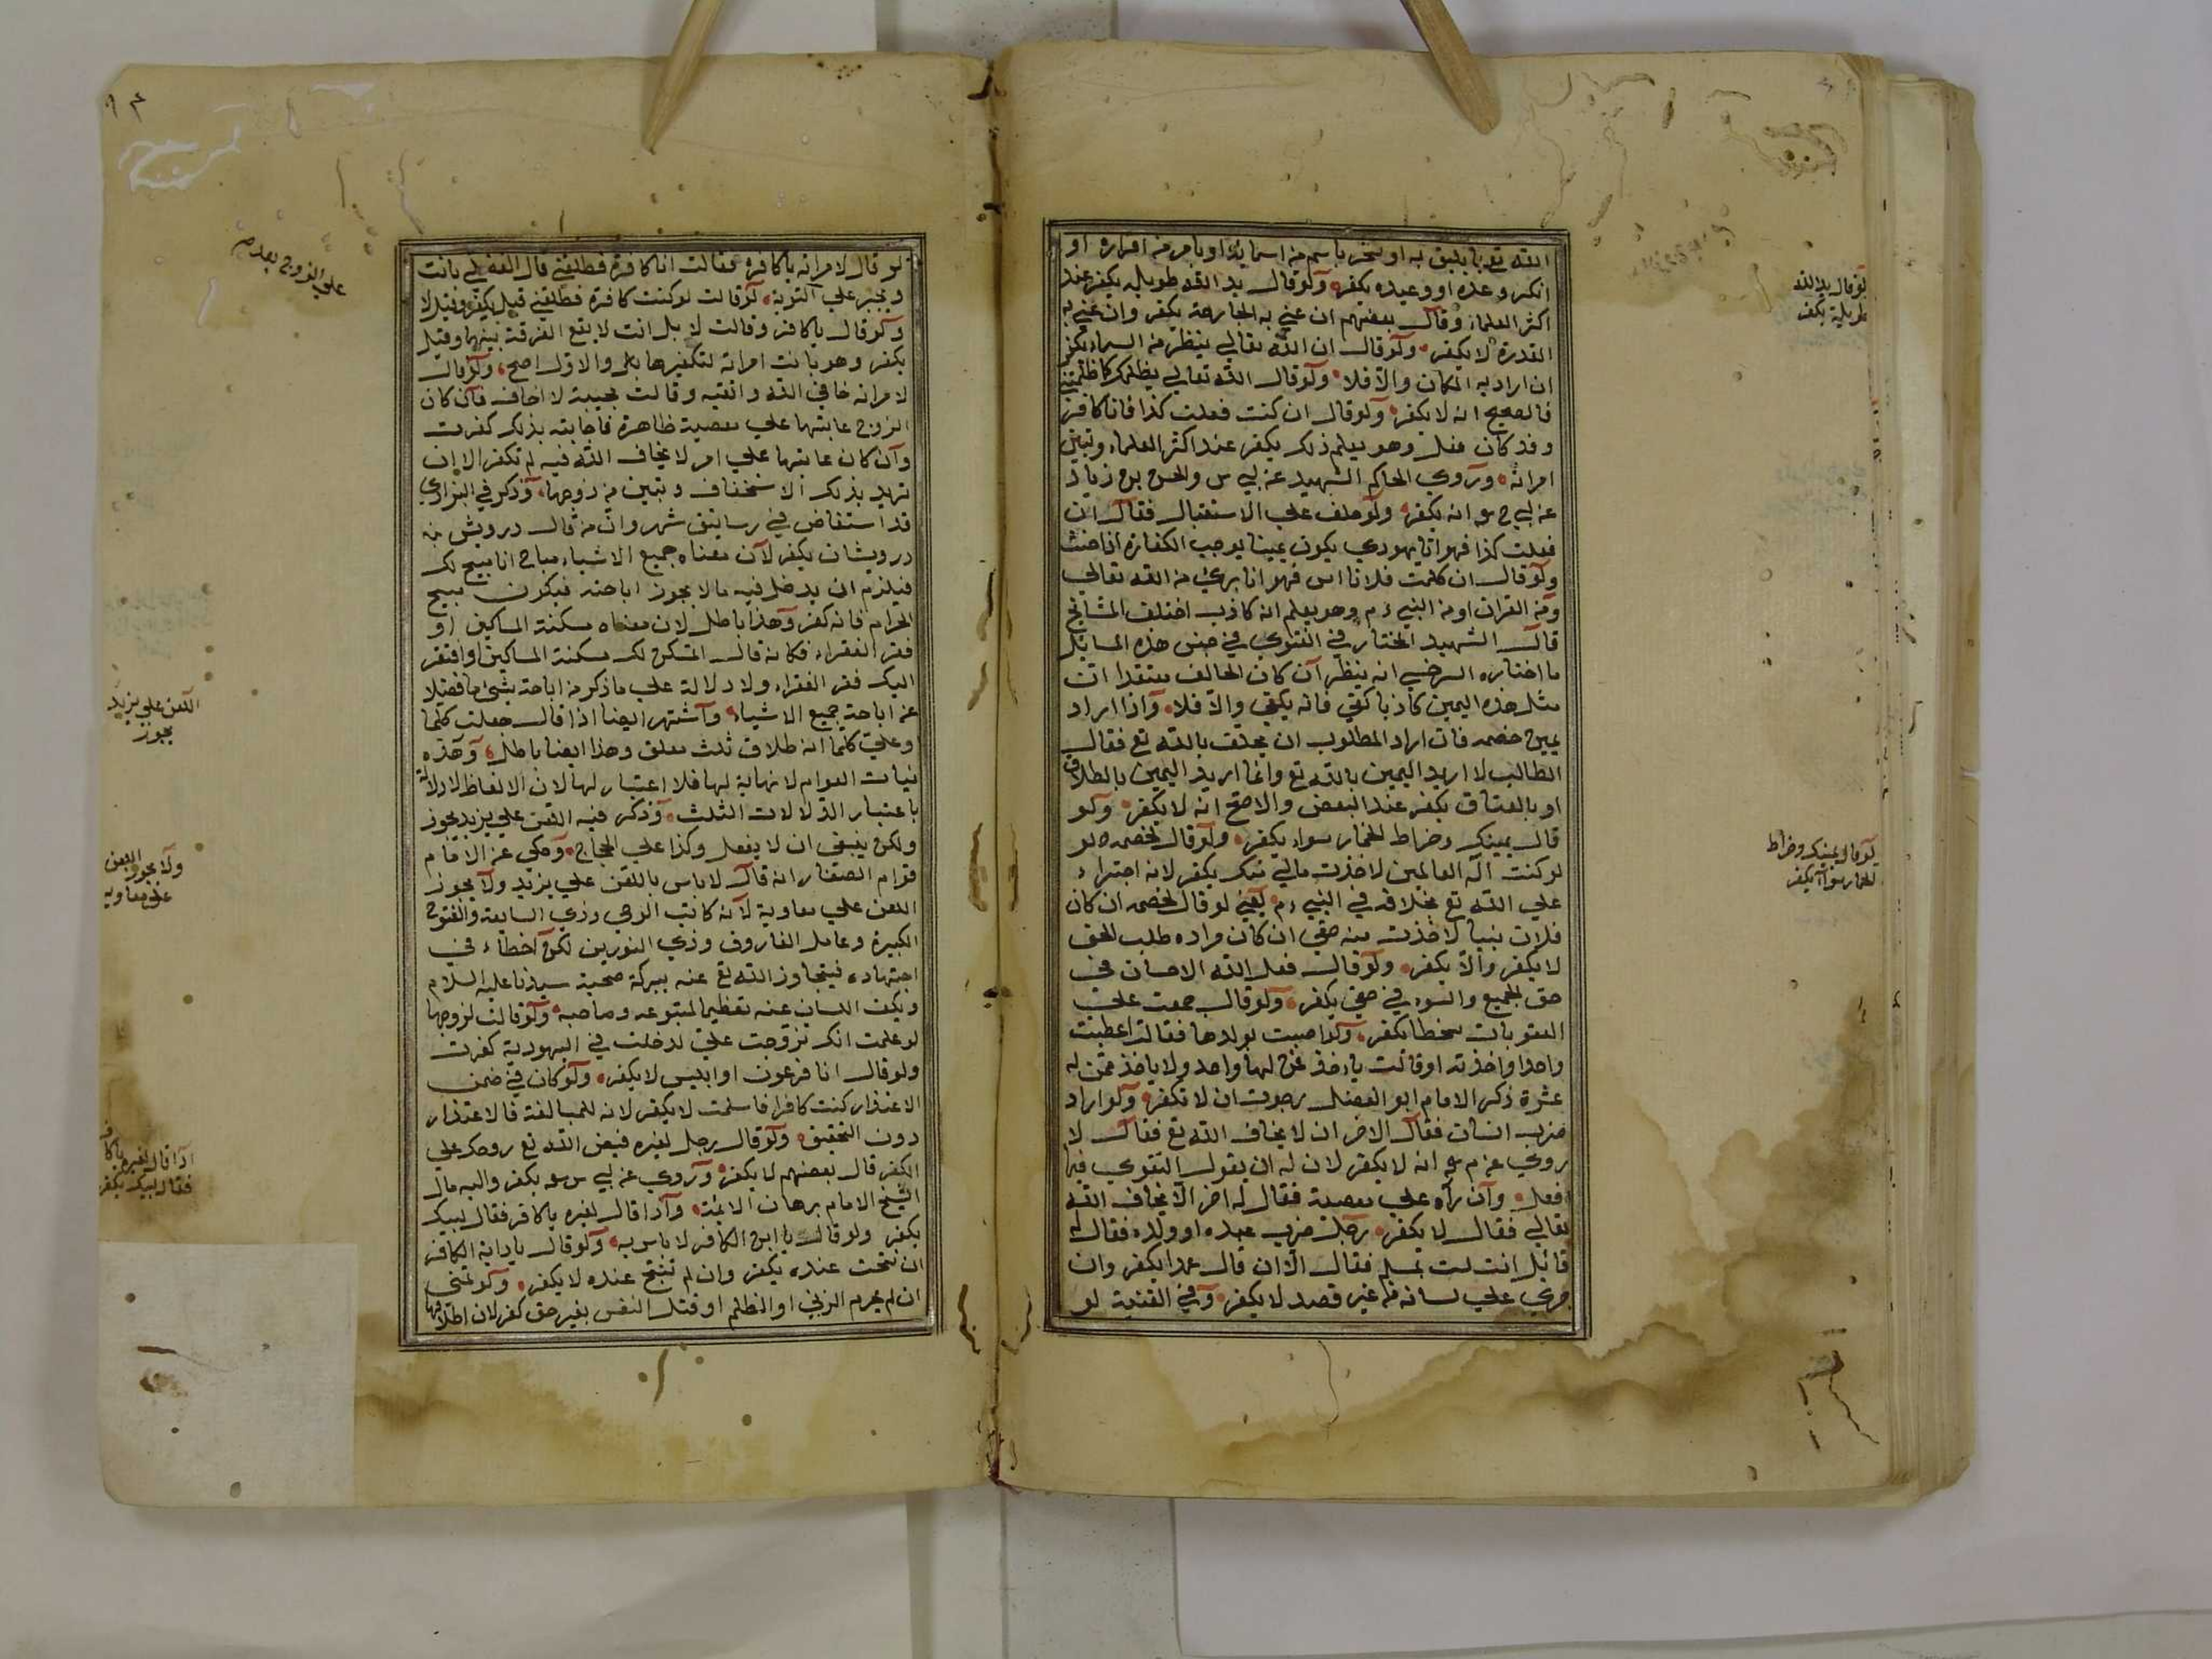 الله تع بما لا يليق به او سخر باسم من اسمائه او بامر من اوامره او
انكر وعده او وعيده يكفر ولو قال يد الله طويله يكفر عند
اكثر العلماء وقال بعضهم ان عني به الجارحة يكفر وان عني به
القدرة لا يكفر ولو قال ان الله تعالي ينظر من السماء يكفر
ان اراد به المكان والا فلا ولو قال الله تعالي يظلمك كما ظلمتني
فالصحيح انه لا يكفر ولو قال ان كنت فعلت كذا فانا كافر
وقد كان فعل وهو يعلم ذلك يكفر عند اكثر العلماء وتبين
امراته وروي الحاكم الشهيد عن ابي س والحسن بن زياد
عن ابي ح انه يكفر ولو حلف علي الاستقبال فقال ان
فعلت كذا فهو اي يهودي يكون يمينا يوجب الكفارة اذا حنث
ولو قال ان كلمت فلانا فهو انا بريئ من الله تعالي
ومن القران او من النبي ءم وهو يعلم انه كاذب اختلف المشايخ
قال الشهيد المختار في الفتوي في جنس هذه المسائل
ما اختاره السرخسي انه ينظر ان كان الحالف معتقدا ان
مثل هذه اليمين كاذبا كفر فانه يكفر والا فلا واذا اراد
يمين خصمه فان اراد المطلوب ان يحلف بالله تع فقال
الطالب لا اريد اليمين بالله تع وانما اريد اليمين بالطلاق
او بالعتاق يكفر عند البعض والاصح انه لا يكفر ولو
قال يمينك وضراط الحمار سواء يكفر ولو قال لخصمه لو
لو كنت اله العالمين لاخذت مالي منك يكفر لانه اجتراء
علي الله تع بخلافه في النبي ءم يعني لو قال لخصمه ان كان
فلان نبيا لاخذت منه حقي ان كان مراده طلب الحق
لا يكفر والا يكفر ولو قال فعل الله الاحسان في
حق الجميع والسوء في حقي يكفر ولو قال جمعت علي
العقوبات سخطا يكفر ولو اصيبت بولدها فقالت اعطيت
واحدا واخذته او قالت ياخذ ممن لها واحد ولا ياخذ ممن له
عشرة ذكر الامام ابو الفضل رجوت ان لا تكفر ولو اراد
ضرب انسان فقال الاخر ان لا يخاف الله تع فقال لا
روي عن م انه لا يكفر لان له ان يقول التقوي فيما
افعل وان رآه علي معصية فقال له اخر الا تخاف الله
تعالي فقال لا يكفر رجل ضرب عبده او ولده فقال له
قائل انت لست بمسلم فقال لا ان قال عمدا يكفر وان
جري علي لسانه من غير قصد لا يكفر وفي القنية لو
لو قال يد الله
طويلة يكفر
لو قال يمينك وضراط
الحمار سواء يكفر
لو قال لامراته يا كافرة فقالت انا كافرة فطلقني قال الفضلي بانت
وتجبر علي التوبة لو قالت لو كنت كافرة فطلقني قيل يكفر وقيل لا
ولو قال يا كافر وقالت لا بل انت لا يقع الفرقة بينهما وقيل
يكفر وهو بانت امراته لتكفيرها والاول اصح ولو قال
لامراته خافي الله واتقيه وقالت مجيبة لا اخاف فان كان
الزوج عاتبها علي معصية ظاهرة فاجابته بذلك كفرت
وان كان عاتبها علي امر لا يخاف الله فيه لم تكفر الا ان
تريد بذلك الاستخفاف وتبين من زوجها وذكر في البزازي
قد استفاض في رساتيق شهروان من قال درويش
درويشان يكفر لان معناه جميع الاشياء مباح انا ابيح لك
فيلزم ان يدخل فيه ما لا يجوز اباحته فيكون مبيح
الحرام فانه كفر وهذا باطل لان معناه مسكنة المساكين او
فقر الفقراء فكانه قال التمسكن لك مسكنة المساكين او افتقر
اليك فقر الفقراء ولا دلالة علي ما ذكر من اباحة شيئ ما فضلا
عن اباحة جميع الاشياء واشتهر ايضا اذا قال جعلت كلما
وعلي كلما انه طلاق ثلث معلق وهذا ايضا باطل وهذه
نيات العوام لا نهاية لها فلا اعتبار لها لان الالفاظ لا دلالة
باعتبار الدلالات الثلث وذكر فيه اللعن علي يزيد يجوز
ولكن ينبغي ان لا يفعل وكذا علي الحجاج وحكي عن الامام
قوام الصفار انه قال لا باس باللعن علي يزيد ولا يجوز
اللعن علي معاوية لانه كاتب الوحي وذي السابقة والفتوح
الكبيرة وعامل الفاروق وذي النورين لكن اخطاء في
اجتهاده فيتجاوز الله تع عنه ببركة صحبة سيدنا عليه السلام
ويكف اللسان عنه تعظيما لمتبوعه وصاحبه ولو قالت لزوجها
لو علمت انك تزوجت علي لدخلت في اليهودية كفرت
ولو قال انا فرعون او ابليس لا يكفر ولو كان في ضمن
الاعتذار كنت كافرا فاسلمت لا يكفر لانه للمبالغة فالاعتذار
دون التحقيق ولو قال رجل لغيره قبض الله تع روحك علي
الكفر قال بعضهم لا يكفر وروي عن ابي س يكفر واليه مال
الشيخ الامام برهان الائمة واذا قال لغيره يا كافر فقال لبيك
يكفر ولو قال يا ابن الكافر لا باس به ولو قال يا دابة الكافر
ان نتجت عنده يكفر وان لم تنتج عنده لا يكفر ولو تمني
ان لم يحرم الزني او الظلم او قتل النفس بغير حق كفر لان اطلاقها
علي الزوج بعد
اللعن علي يزيد
يجوز
ولا يجوز اللعن
علي معاويه
اذا قال لغيره يا كافر
فقال لبيك يكفر